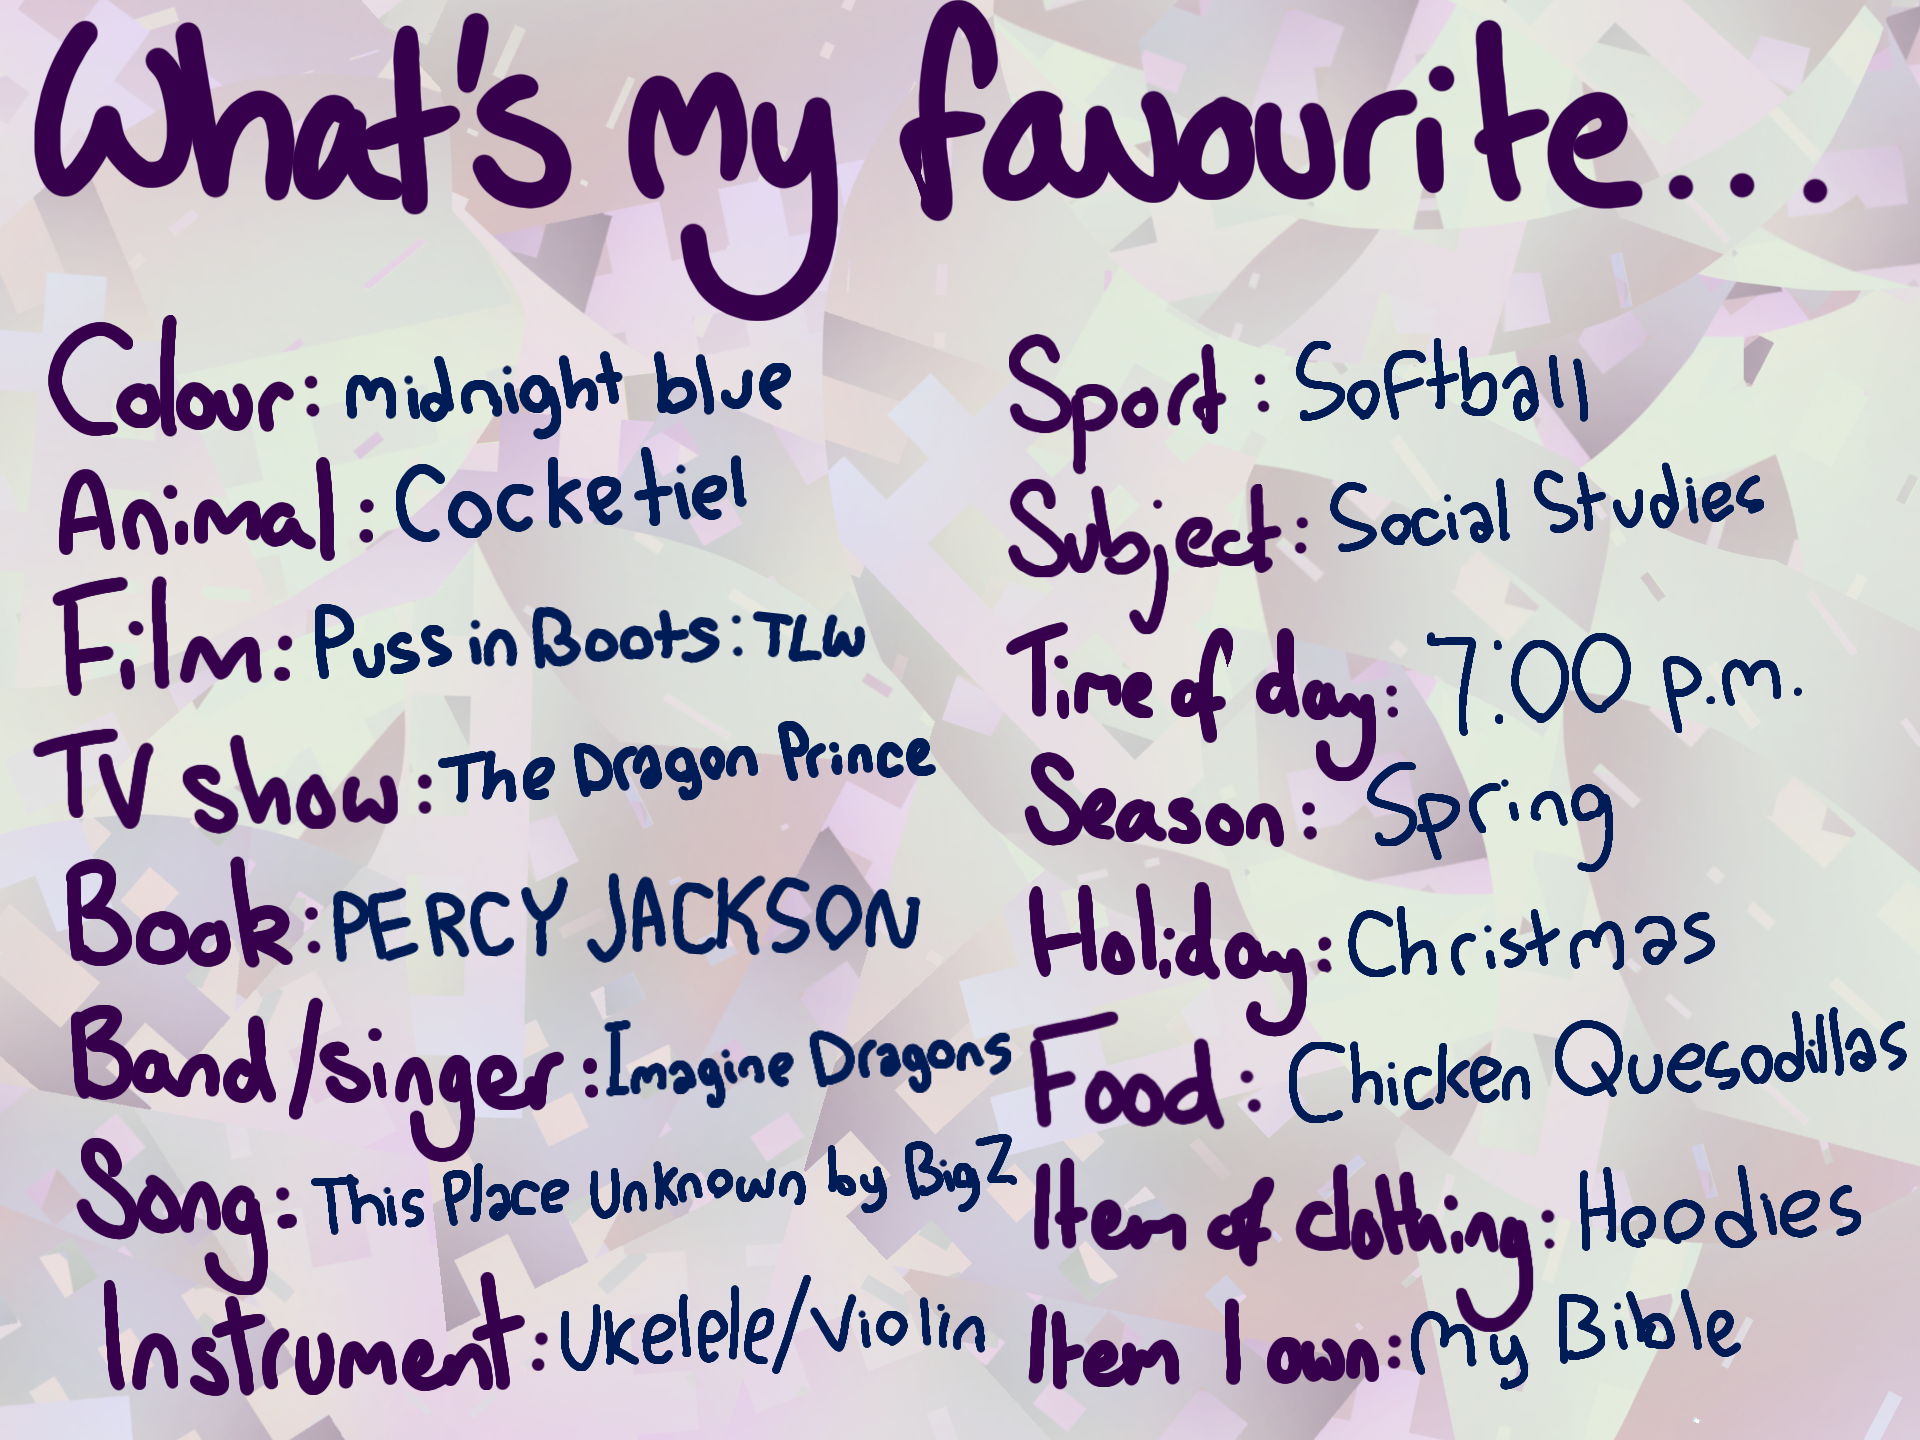 What's my favourite...
Colour: midnight blue
Animal: Cocketiel
Film: Puss in Boots: TLW
TV show: The Dragon Prince
Book: PERCY JACKSON
Band/singer: Imagine Dragons
Song: This Place Unknown by Big Z
Instrument: Ukelele/Violin
Sport: Softball
Subject: Social Studies
Time of day: 7:00 p.m.
Season: Spring
Holiday: Christmas
Food: Chicken Quesodillas
Item of clothing: Hoodies
Item I own: My Bible